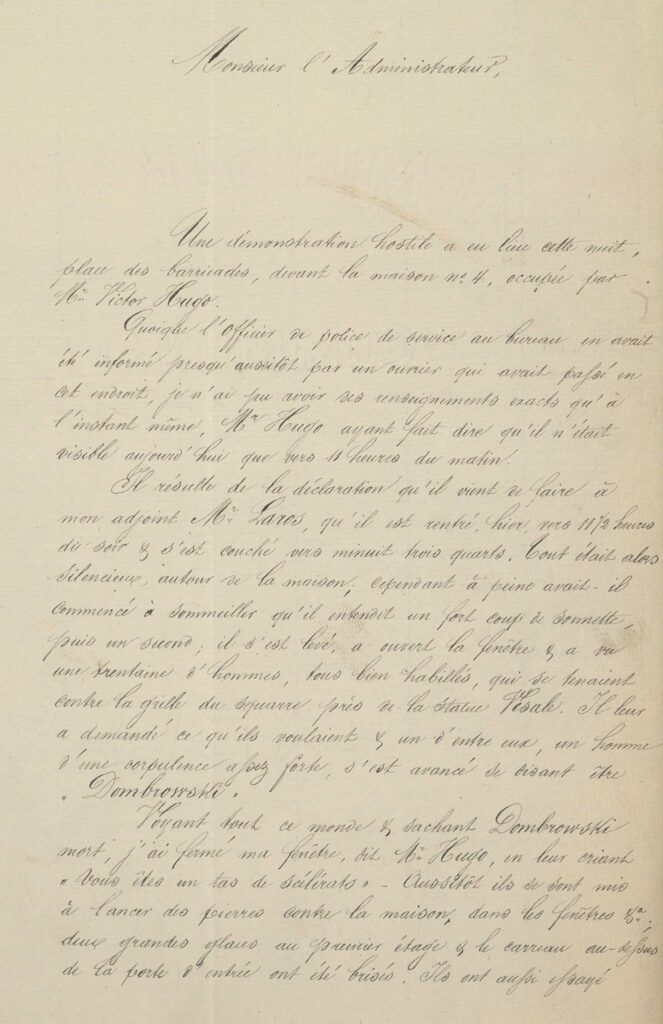 Monsieur l'Administrateur,
Une démonstration hostile a eu lieu cette nuit,
place des barricades, devant la maison no 4, occupée par
Mr. Victor Hugo.
Quoique l'Officier de police de service au bureau en avait
été informé presqu'aussitôt par un ouvrier qui avait passé en
cet endroit, je n'ai pu avoir ses renseignements exacts qu'à
l'instant même, Mr Hugo ayant fait dire qu'il n'était
visible aujourd'hui que vers 11 heures du matin.
Il résulte de la déclaration qu'il vient de faire à
mon adjoint Mr. Laros, qu'il est rentré, hier, vers 11 1/2 heures
du soir & s'est couché vers minuit trois quarts. Tout était alors
silencieux autour de la maison, cependant à peine avait-il
commencé à sommeiller qu'il entendit un fort coup de sonnette,
puis un second; il s'est levé, a ouvert la fenêtre & a vu
une trentaine d'hommes, tous bien habillés, qui se tenaient
contre la grille du squarre près de la statue Vésale. Il leur
a demandé ce qu'ils voulaient & un d'entre eux, un homme
d'une corpulence assez forte, s'est avancé se disant être
" Dombrowski "
Voyant tout ce monde & sachant Dombrowski
mort, j'ai fermé ma fenêtre, dit Mr. Hugo, en leur criant
" Vous êtes un tas de scélérats " - Aussitôt ils se sont mis
à lancer des pierres contre la maison, dans les fenêtres &a;
deux grandes glaces au premier étage & le carreau au-dessus
de la porte d'entrée ont été brisés. Ils ont aussi essayé